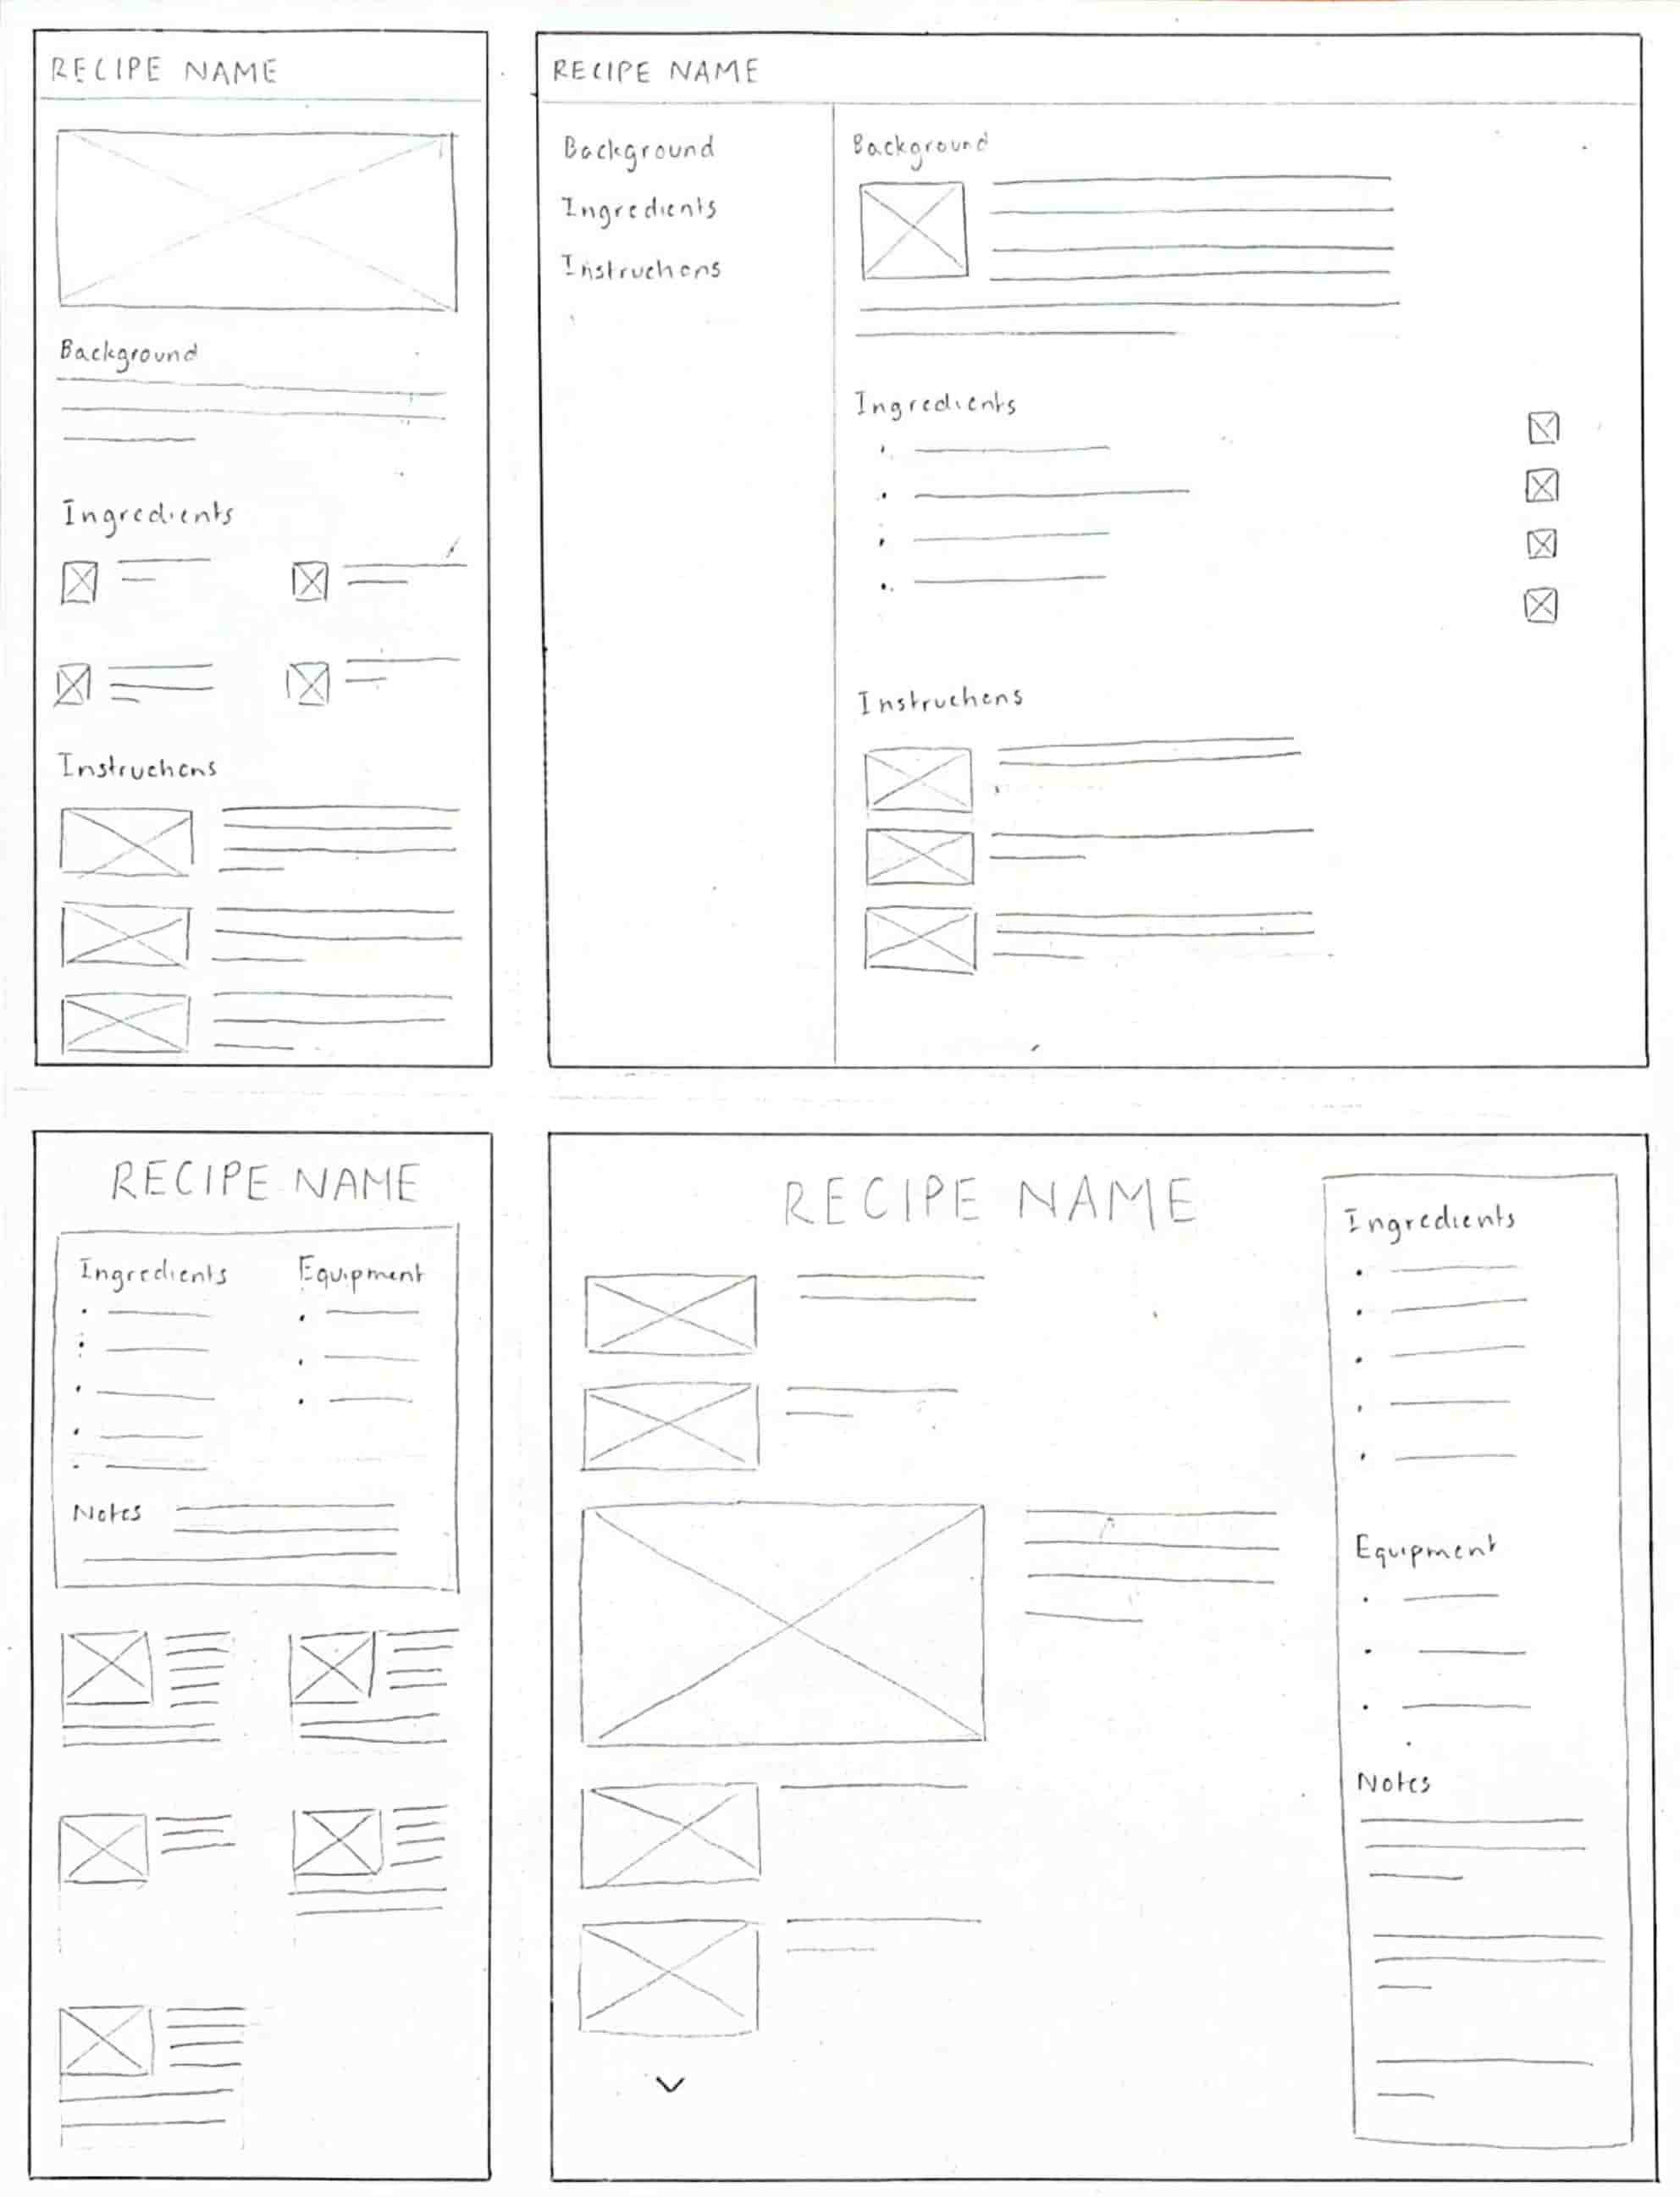 RECIPE NAME
Background
Ingredients
Instructions
RECIPE NAME
Background
Ingredients
Instructions
Background
Ingredients
Instructions
RECIPE NAME
Ingredients
Equipment
Notes
RECIPE NAME
Ingredients
Equipment
Notes